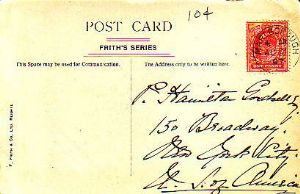 104
POST CARD
FRITH'S SERIES
This Space may be used for Communication.
The Address only to be written here.
F. Frith & Co. Ltd. Reigate.
P. Hamilton
150 Broadway.
New York City.
U. S. of America